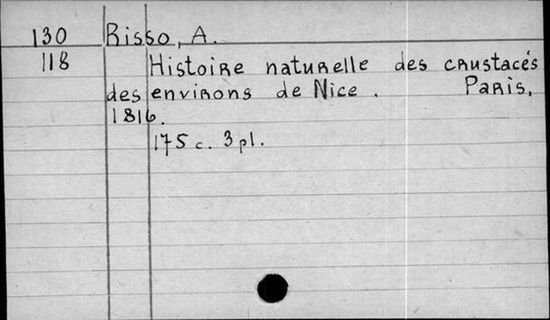 130 Risso, A.
118 Histoire naturelle des crustacés
des environs de Nice. Paris,
1816.
175 c. 3 pl.